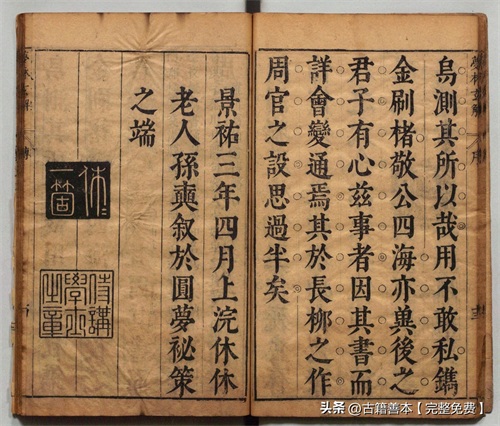 烏測其所以哉用不敢私鐫
金刷楮敬公四海亦兾後之
君子有心兹事者因其書而
詳會變通焉其於長柳之作
周官之設思過半矣
景祐三年四月上浣休休
老人孫奭叙於圓夢祕策
之端
侍講
學士
之章
头条 @古籍善本【完整免费】